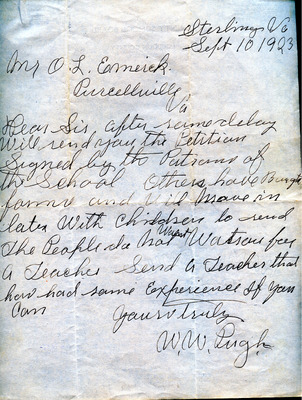 Sterling Va
Sept 10 1923
Mr O. L. Emerick.
Purcellville
Va
Dear Sir after some delay
Will send you the Petition
Signed by the Patrons of
the School Others have Bought
farms and Will Move in
later With Children to send
The People do Not Want Watson for
a Teacher Send a Teacher that
has had some Experience If You
Can
Yours truly
W. W. Pugh.